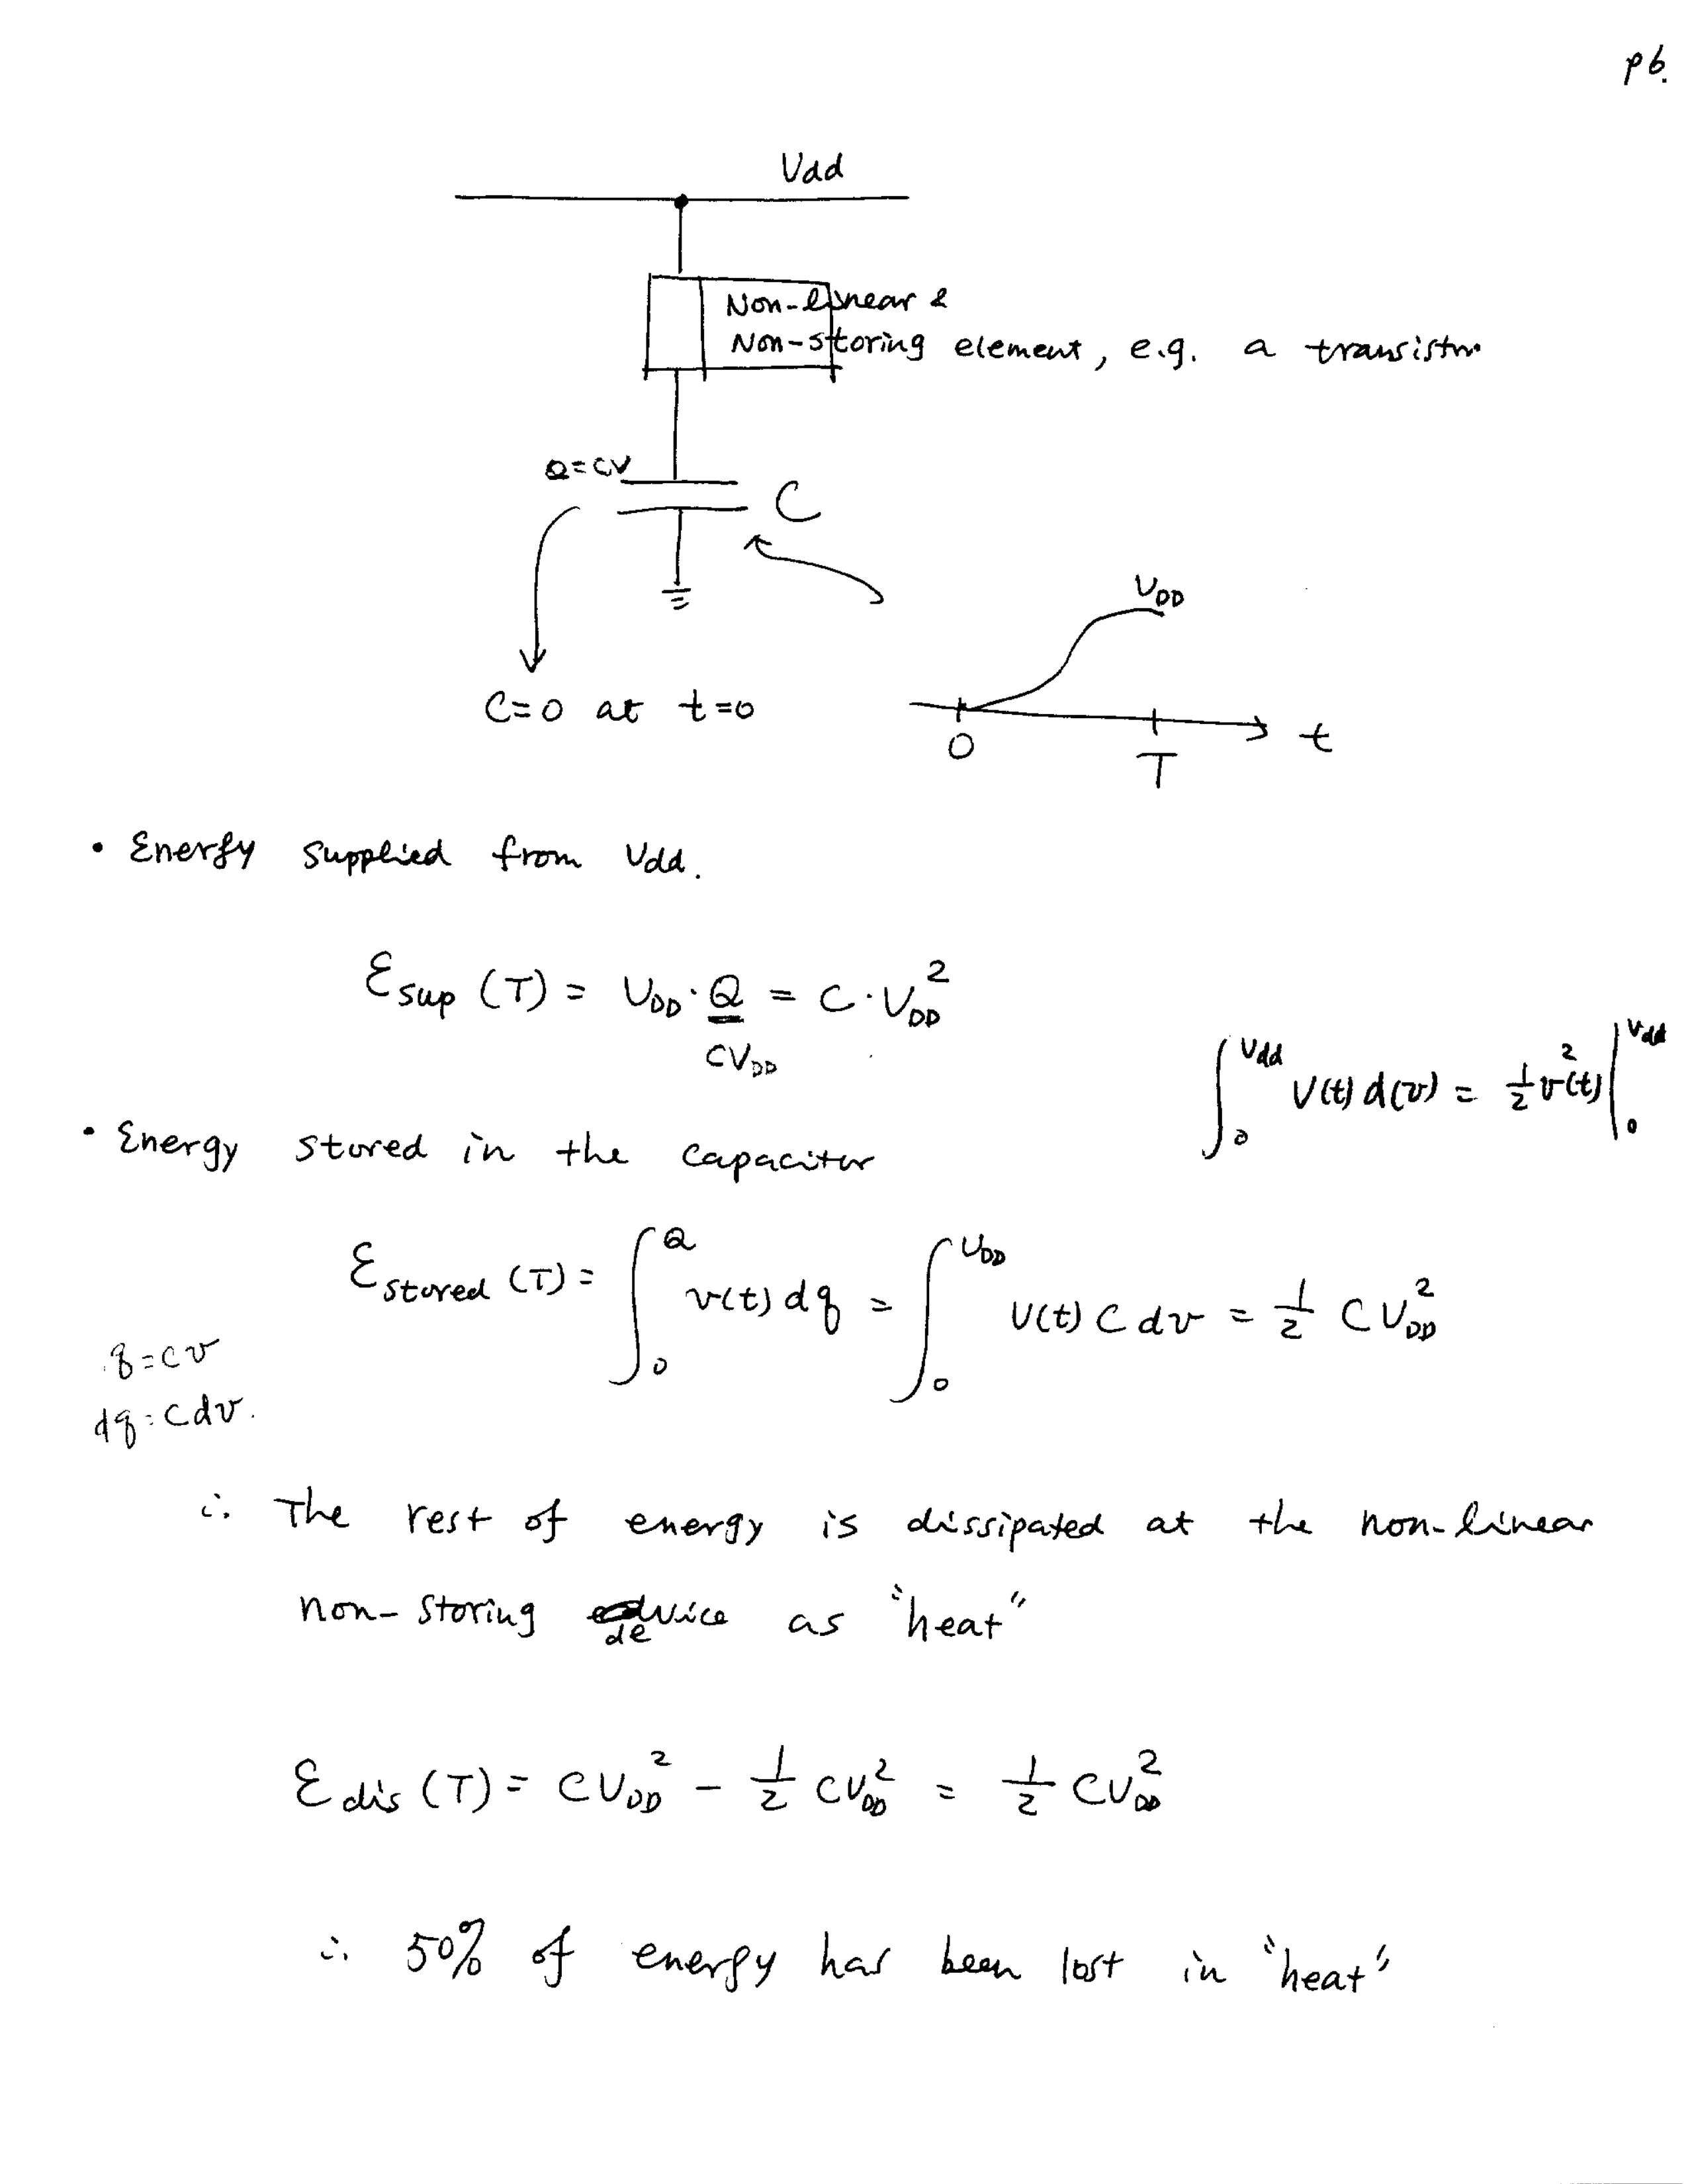 p6.
Vdd
Non-linear &
Non-storing element, e.g. a transistor
Q=CV
C
VDD
C=0 at t=0
0
T
t
• Energy supplied from Vdd.
Esup (T) = VDD · Q = C · VDD²
CVDD
∫₀^Vdd V(t) d(v) = ½ v²(t) |₀^Vdd
• Energy stored in the capacitor
Estored (T) = ∫₀^Q v(t) dq = ∫₀^VDD V(t) C dv = ½ C VDD²
q = cv
dq = cdv.
∴ The rest of energy is dissipated at the non-linear
non-storing device as "heat"
Edis (T) = CVDD² - ½ CVDD² = ½ CVDD²
∴ 50% of energy has been lost in "heat"